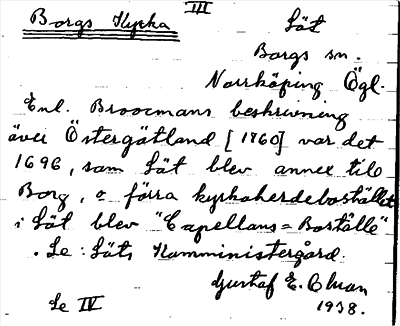 III
Borgs Kyrka
Löt
Borgs sn.
Norrköping Ögl.
Enl. Broocmans beskrivning
över Östergötland [1760] var det
1696, som Löt blev annex till
Borg, o förra kyrkoherdebostället
i Löt blev "Capellans=Boställe"
. Se: Löts Komministergård.
Gustaf E. Olson
1938.
Se IV